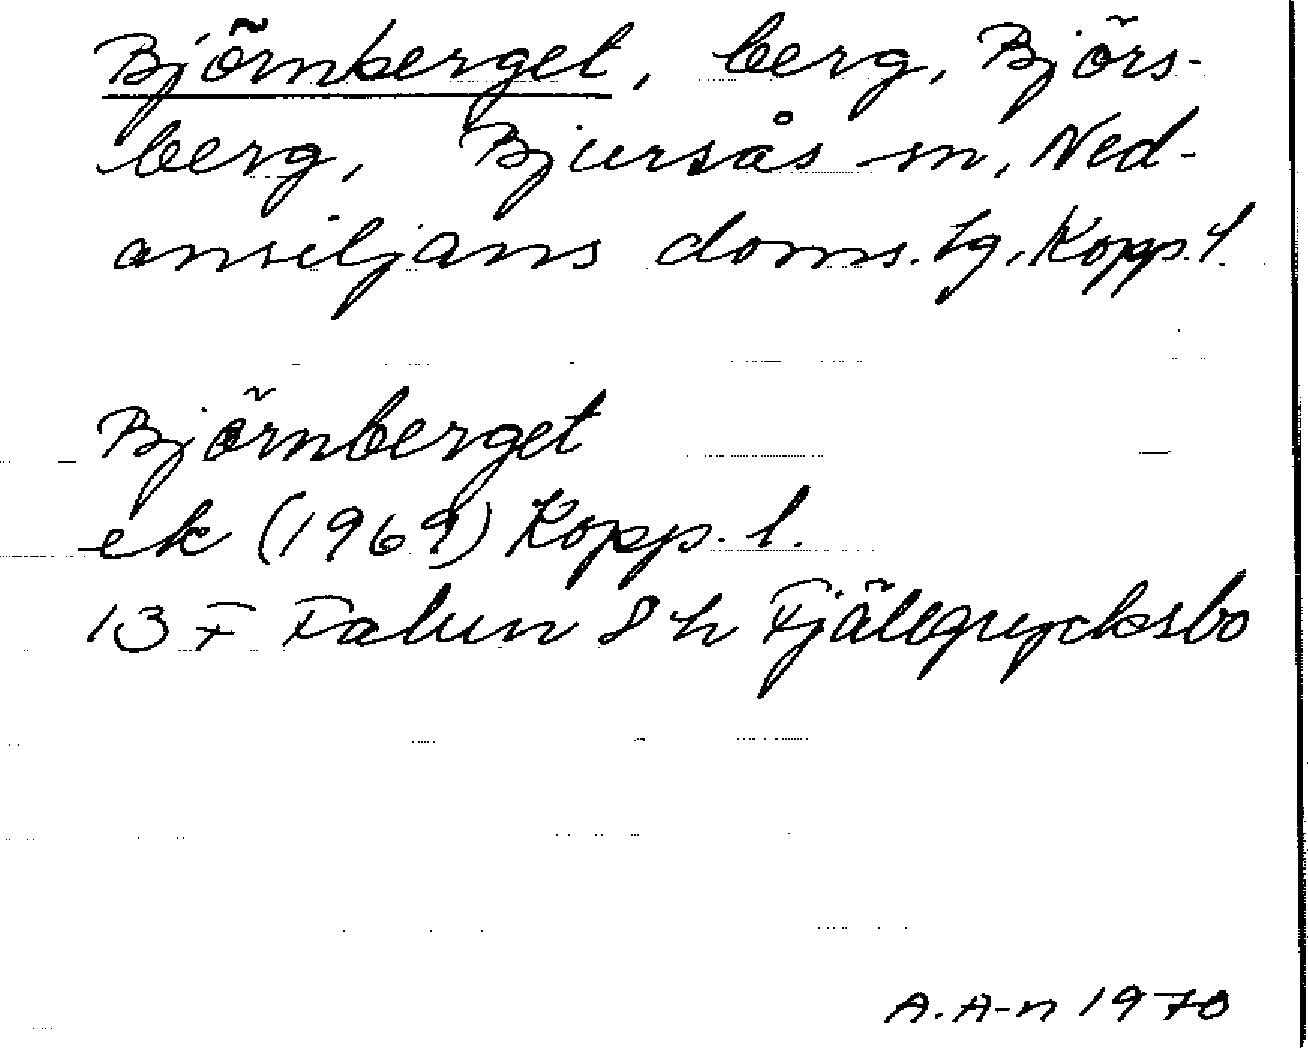 Björnberget, berg, Björs-
berg, Bjursås sn, Ned-
ansiljans doms. tg, Kopp. l.
Björnberget
ek (1969) Kopp. l.
13 F Falun 8 h Fjällgrycksbo
A. A-n 1970